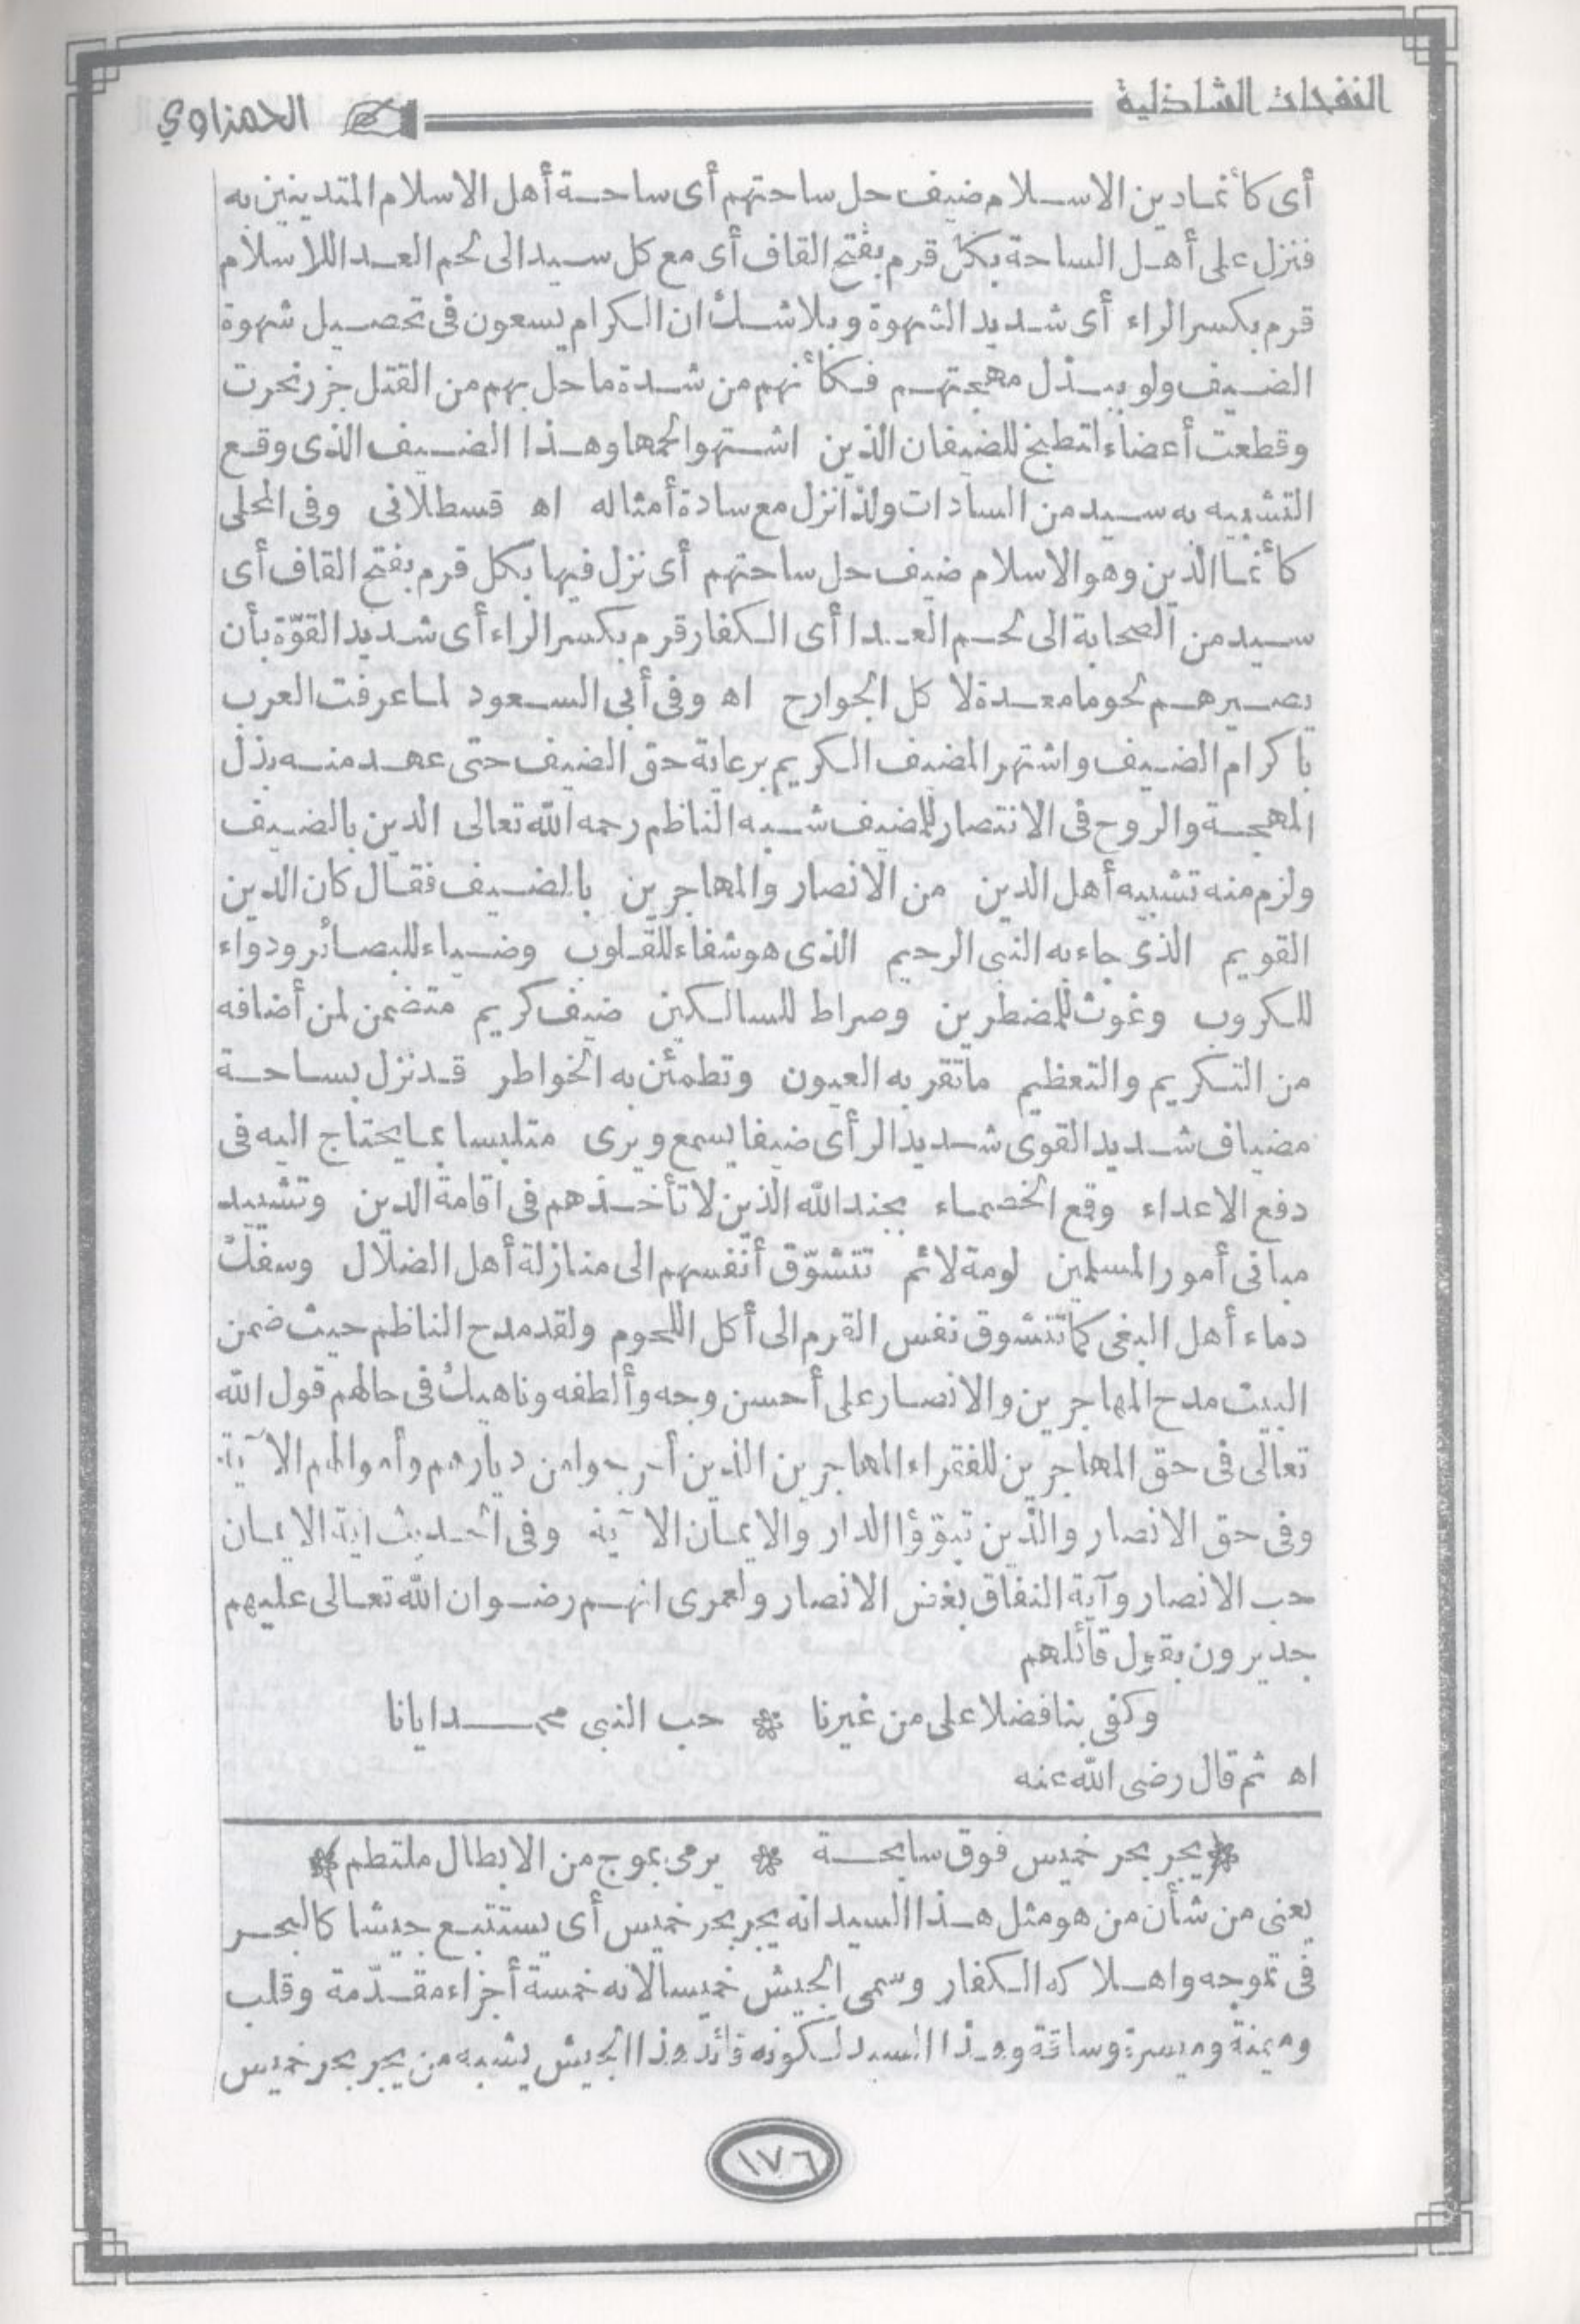 النفحات الشاذلية الحمزاوي
أى كأنما دين الاسلام ضيف حل ساحتهم أى ساحة أهل الاسلام المتدينين به
فنزل على أهل الساحة بكل قرم بفتح القاف أى مع كل سيد الى لحم العدا للاسلام
قرم بكسر الراء أى شديد الشهوة وبلا شك ان الكرام يسعون فى تحصيل شهوة
الضيف ولو ببذل مهجتهم فكأنهم من شدة ما حل بهم من القتل جزر نحرت
وقطعت أعضاء لتطبخ للضيفان الذين اشتهوا لحمها وهذا الضيف الذى وقع
التشبيه به سيد من السادات ولذا نزل مع سادة أمثاله اه قسطلانى وفى المحلى
كأنما الدين وهو الاسلام ضيف حل ساحتهم أى نزل فيها بكل قرم بفتح القاف أى
سيد من الصحابة الى لحم العدا أى الكفار قرم بكسر الراء أى شديد القوّة بأن
يصيرهم لحوما معدة لاكل الجوارح اه وفى أبى السعود لما عرفت العرب
باكرام الضيف واشتهر المضيف الكريم برعاية حق الضيف حتى عهد منه بذل
المهجة والروح فى الانتصار للمضيف شبه الناظم رحمه الله تعالى الدين بالضيف
ولزم منه تشبيه أهل الدين من الانصار والمهاجرين بالضيف فقال كان الدين
القويم الذى جاء به النبى الرحيم الذى هو شفاء للقلوب وضياء للبصائر ودواء
للكروب وغوث للمضطرين وصراط للسالكين ضيف كريم متضمن لمن أضافه
من التكريم والتعظيم ما تقر به العيون وتطمئن به الخواطر قد نزل بساحة
مضياف شديد القوى شديد الرأى ضيفا يسمع ويرى متلبسا بما يحتاج اليه فى
دفع الاعداء وقمع الخصماء بجند الله الذين لا تأخذهم فى اقامة الدين وتشييد
مبانى أمور المسلمين لومة لائم تتشوّق أنفسهم الى منازلة أهل الضلال وسفك
دماء أهل البغى كما تتشوق نفس القرم الى أكل اللحوم ولقد مدح الناظم حيث ضمن
البيت مدح المهاجرين والانصار على أحسن وجه وألطفه وناهيك فى حالهم قول الله
تعالى فى حق المهاجرين للفقراء المهاجرين الذين أخرجوا من ديارهم وأموالهم الآية
وفى حق الانصار والذين تبوّؤا الدار والايمان الآية وفى الحديث آية الايمان
حب الانصار وآية النفاق بغض الانصار ولعمرى انهم رضوان الله تعالى عليهم
جديرون بقول قائلهم
وكفى بنا فضلا على من غيرنا * حب النبى محمد ايانا
اه ثم قال رضى الله عنه
﴿يجر بحر خميس فوق سابحة * يرمى بموج من الابطال ملتطم﴾
يعنى من شأن من هو مثل هذا السيد انه يجر بحر خميس أى يستتبع جيشا كالبحر
فى تموجه واهلاكه الكفار وسمى الجيش خميسا لانه خمسة أجزاء مقدّمة وقلب
وميمنة وميسرة وساقة وهذا السيد لكونه قائد هذا الجيش يشبه من يجر بحر خميس
١٧٦